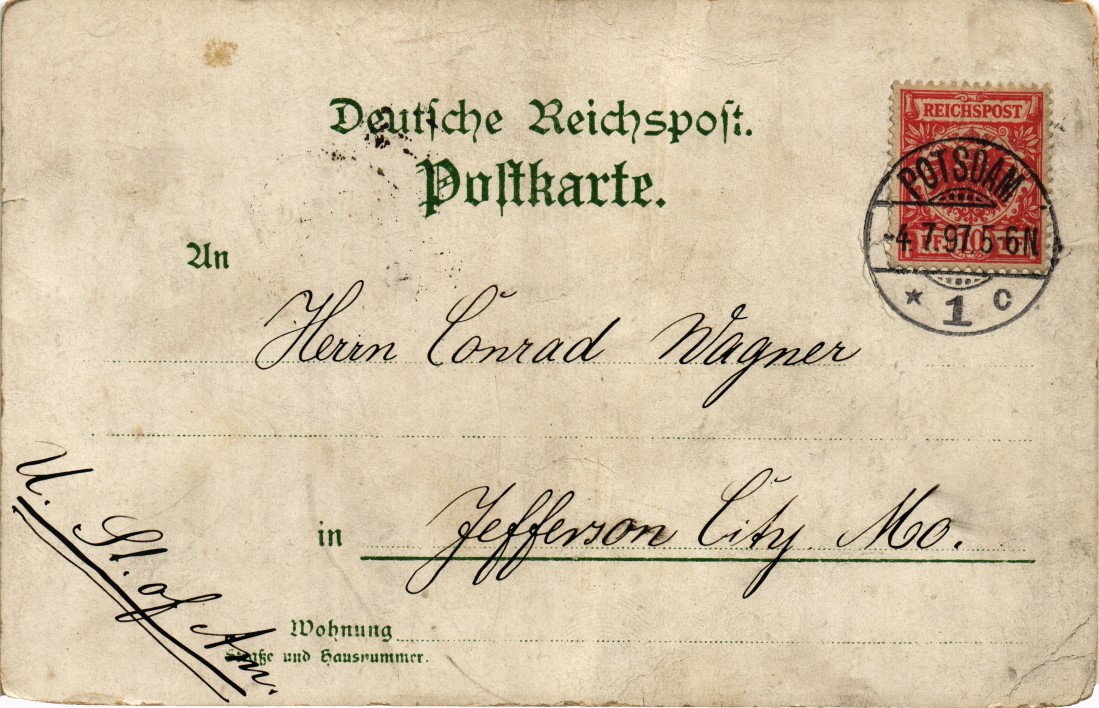 Deutsche Reichspost.
Postkarte.
REICHSPOST
POTSDAM
-4.7.97.5-6N
* 1 c
An
Herrn Conrad Wagner
in Jefferson City Mo.
U. St. of Am.
Wohnung
Straße und Hausnummer.